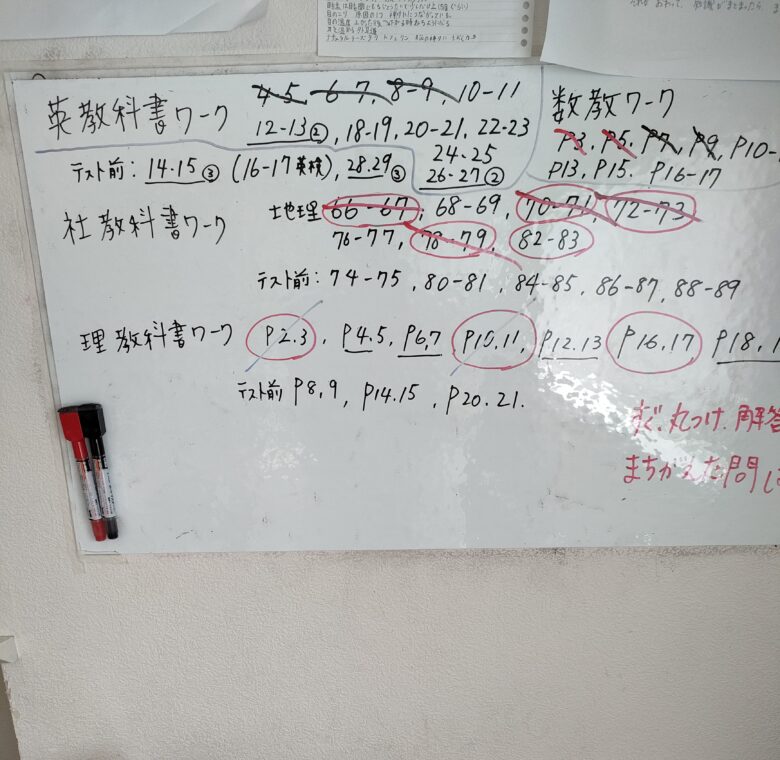 英教科書ワーク 4-5, 6-7, 8-9, 10-11
12-13②, 18-19, 20-21, 22-23
24-25
テスト前: 14.15③ (16-17英検), 28.29③ 26-27②
数教ワーク
P3, P5, P7, P9, P10-
P13, P15. P16-17
社教科書ワーク 地理 66-67, 68-69, 70-71, 72-73
76-77, 78-79, 82-83
テスト前: 74-75, 80-81, 84-85, 86-87, 88-89
理教科書ワーク P2.3, P4.5, P6,7 P10,11, P12.13 P16.17, P18,1
テスト前 P8,9, P14.15, P20.21.
すぐ.丸つけ.解答
まちがえた問